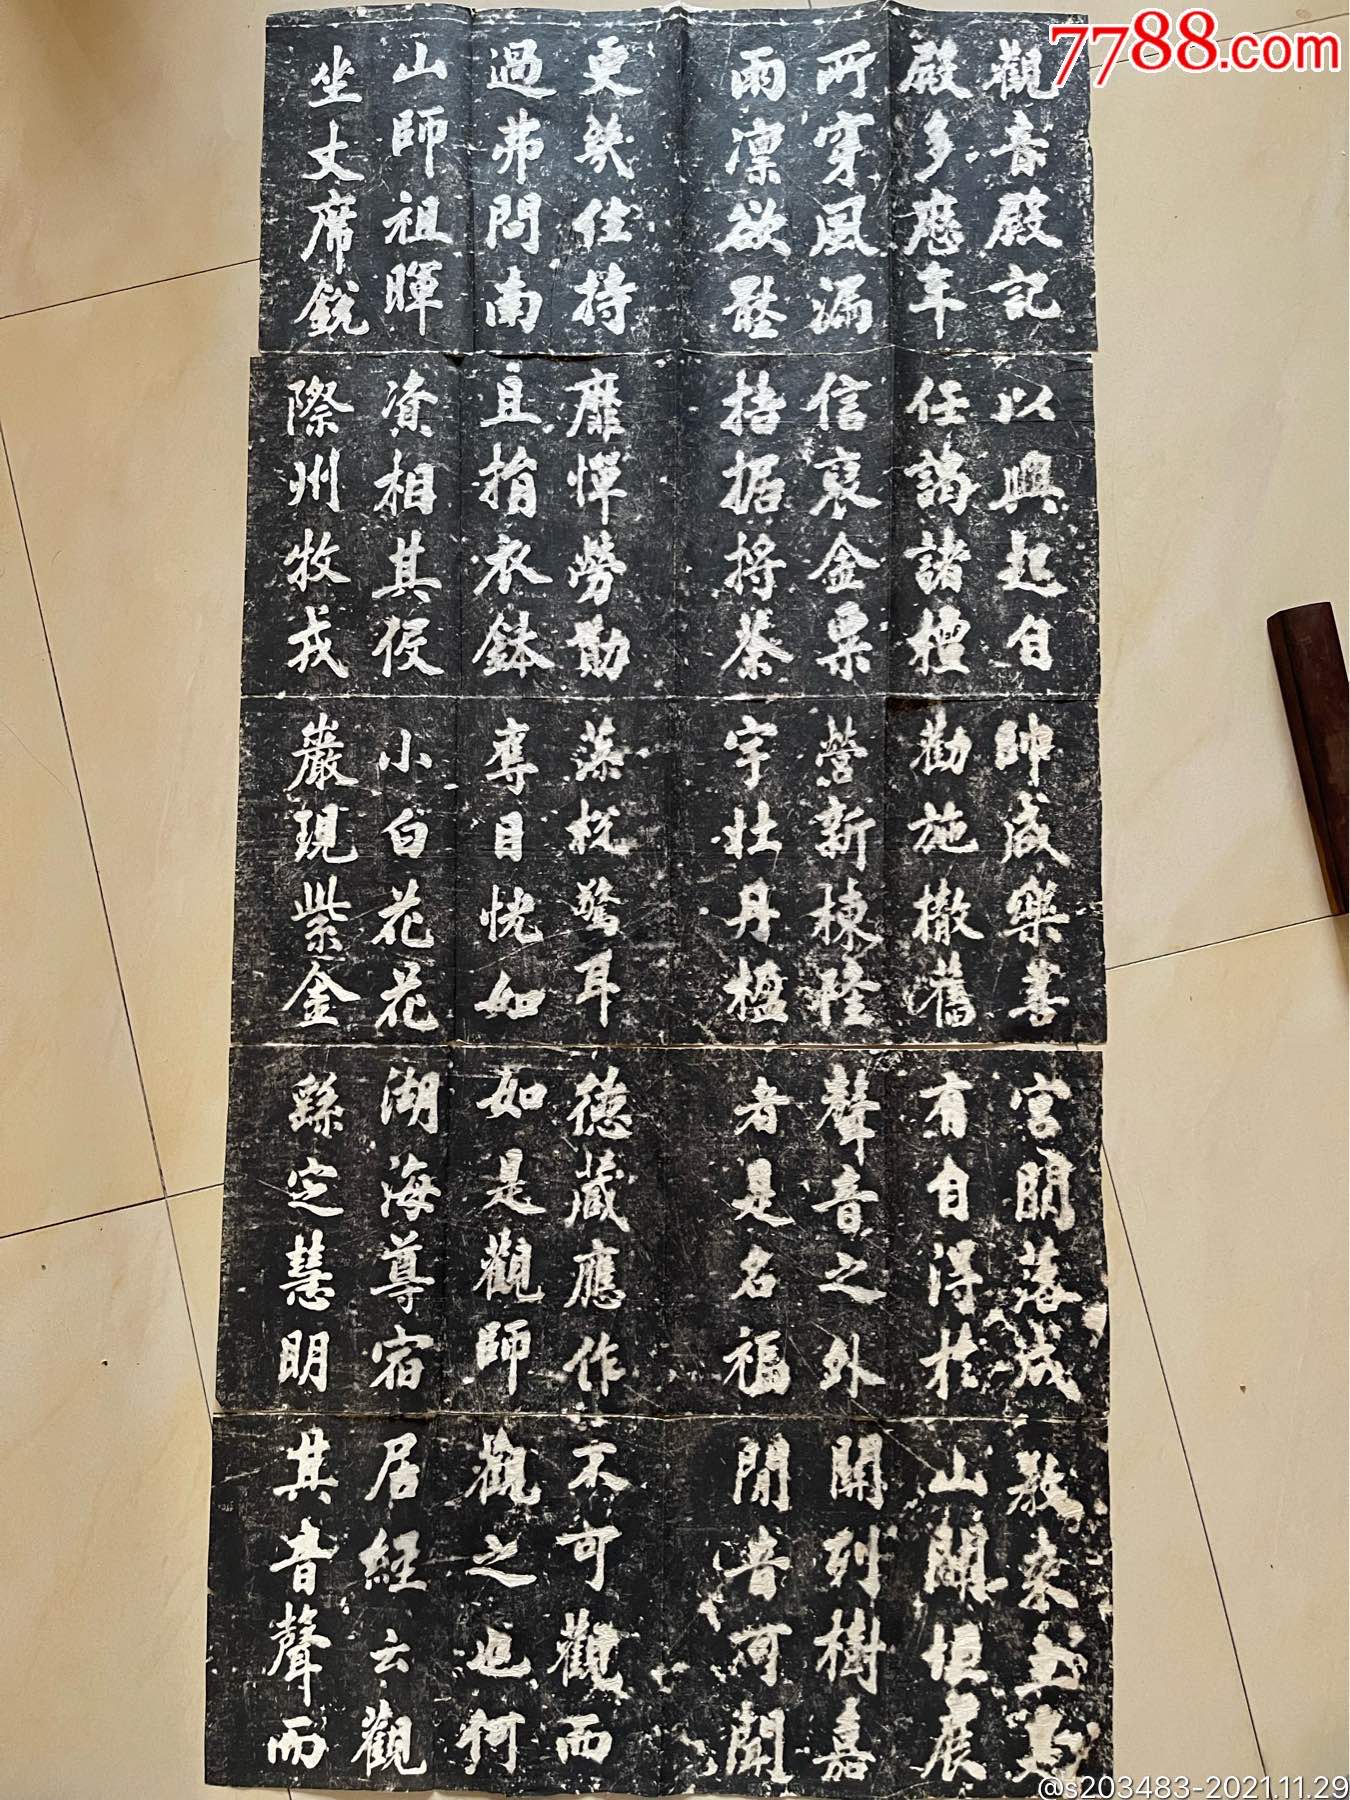 7788.com
觀音殿記
殿多歷年
所穿風漏
雨凛欲壓
更幾住持
過弗問南
山師祖暉
坐丈席銳
以興起自
任謁諸檀
信裒金粟
拮据捋荼
靡憚勞勩
且捐衣鉢
資相其役
際州牧戎
帥咸樂善
勸施撤舊
營新棟隆
宇壯丹楹
藻梲驚耳
奪目恍如
小白花花
巖現紫金
宮落成
有自得於
聲音之外
者是名福
德藏應作
如是觀師
湖海尊宿
繇定慧明
教来主茲
山闢垣展
開列樹嘉
音可聞
不可觀而
觀之也何
居經云觀
其音聲而
@s203483-2021.11.29